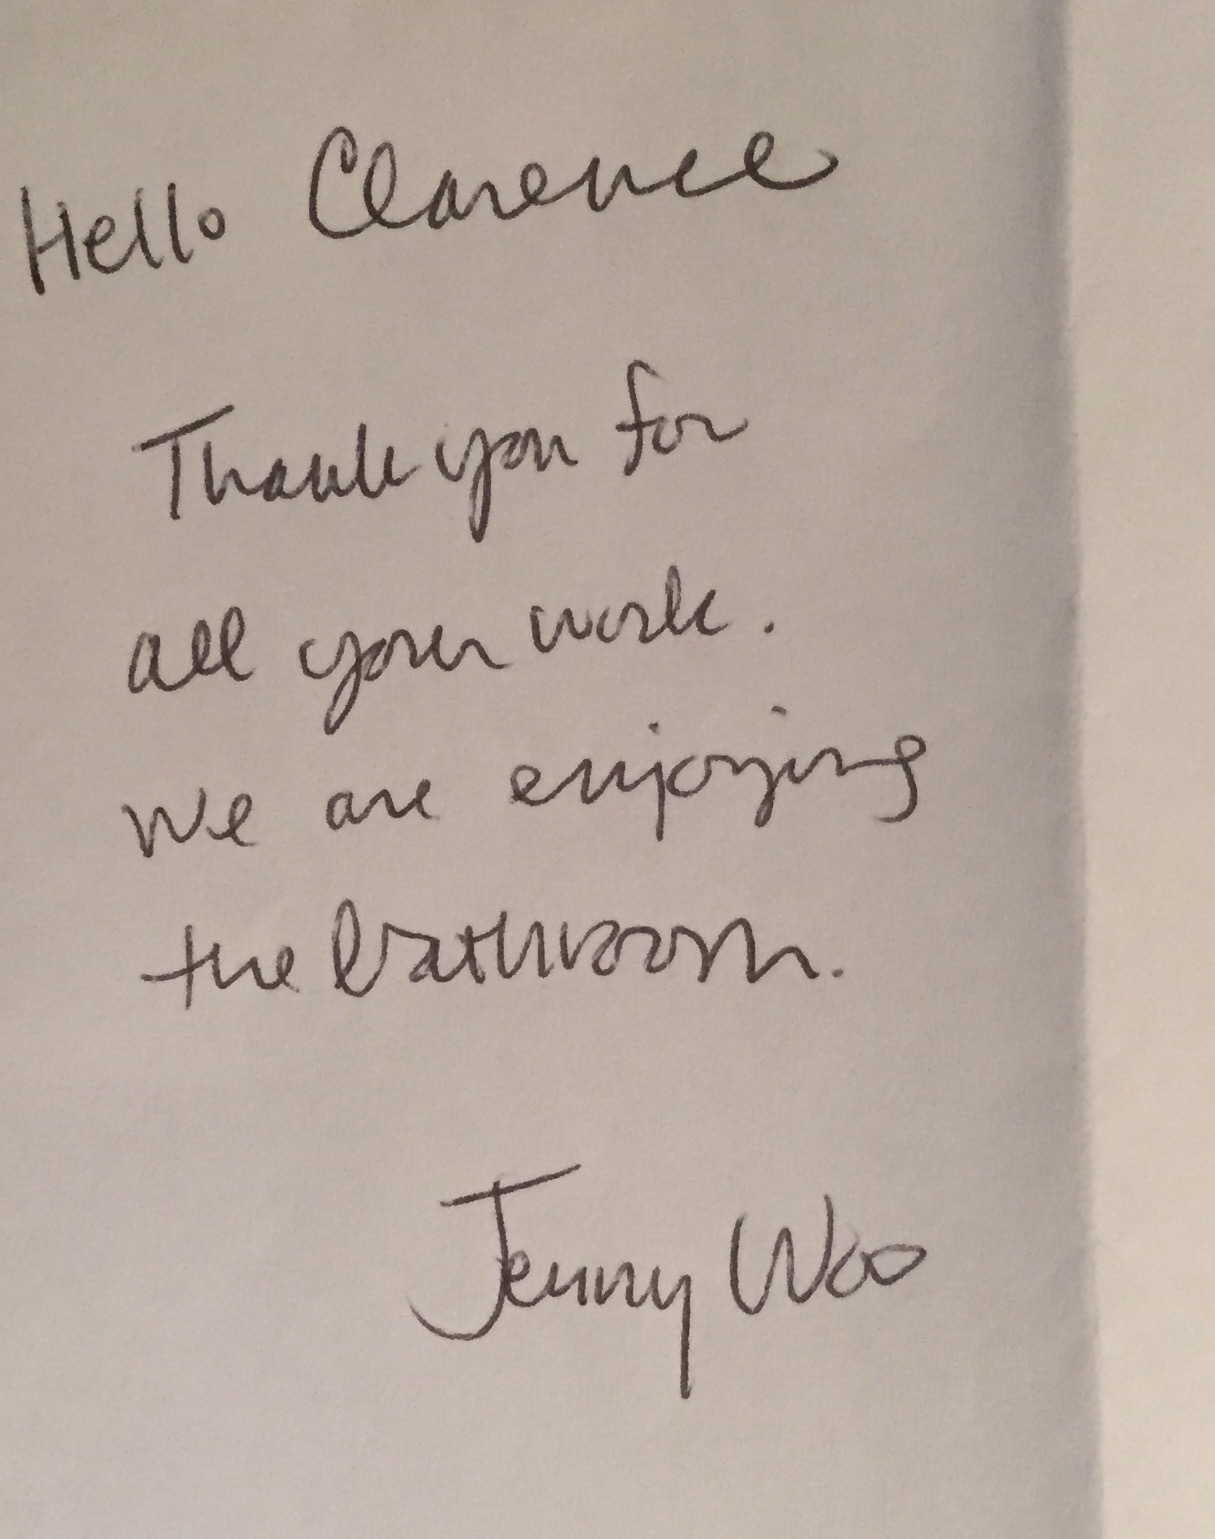 Hello Clarence
Thank you for
all your work.
We are enjoying
the bathroom.
Jenny Woo